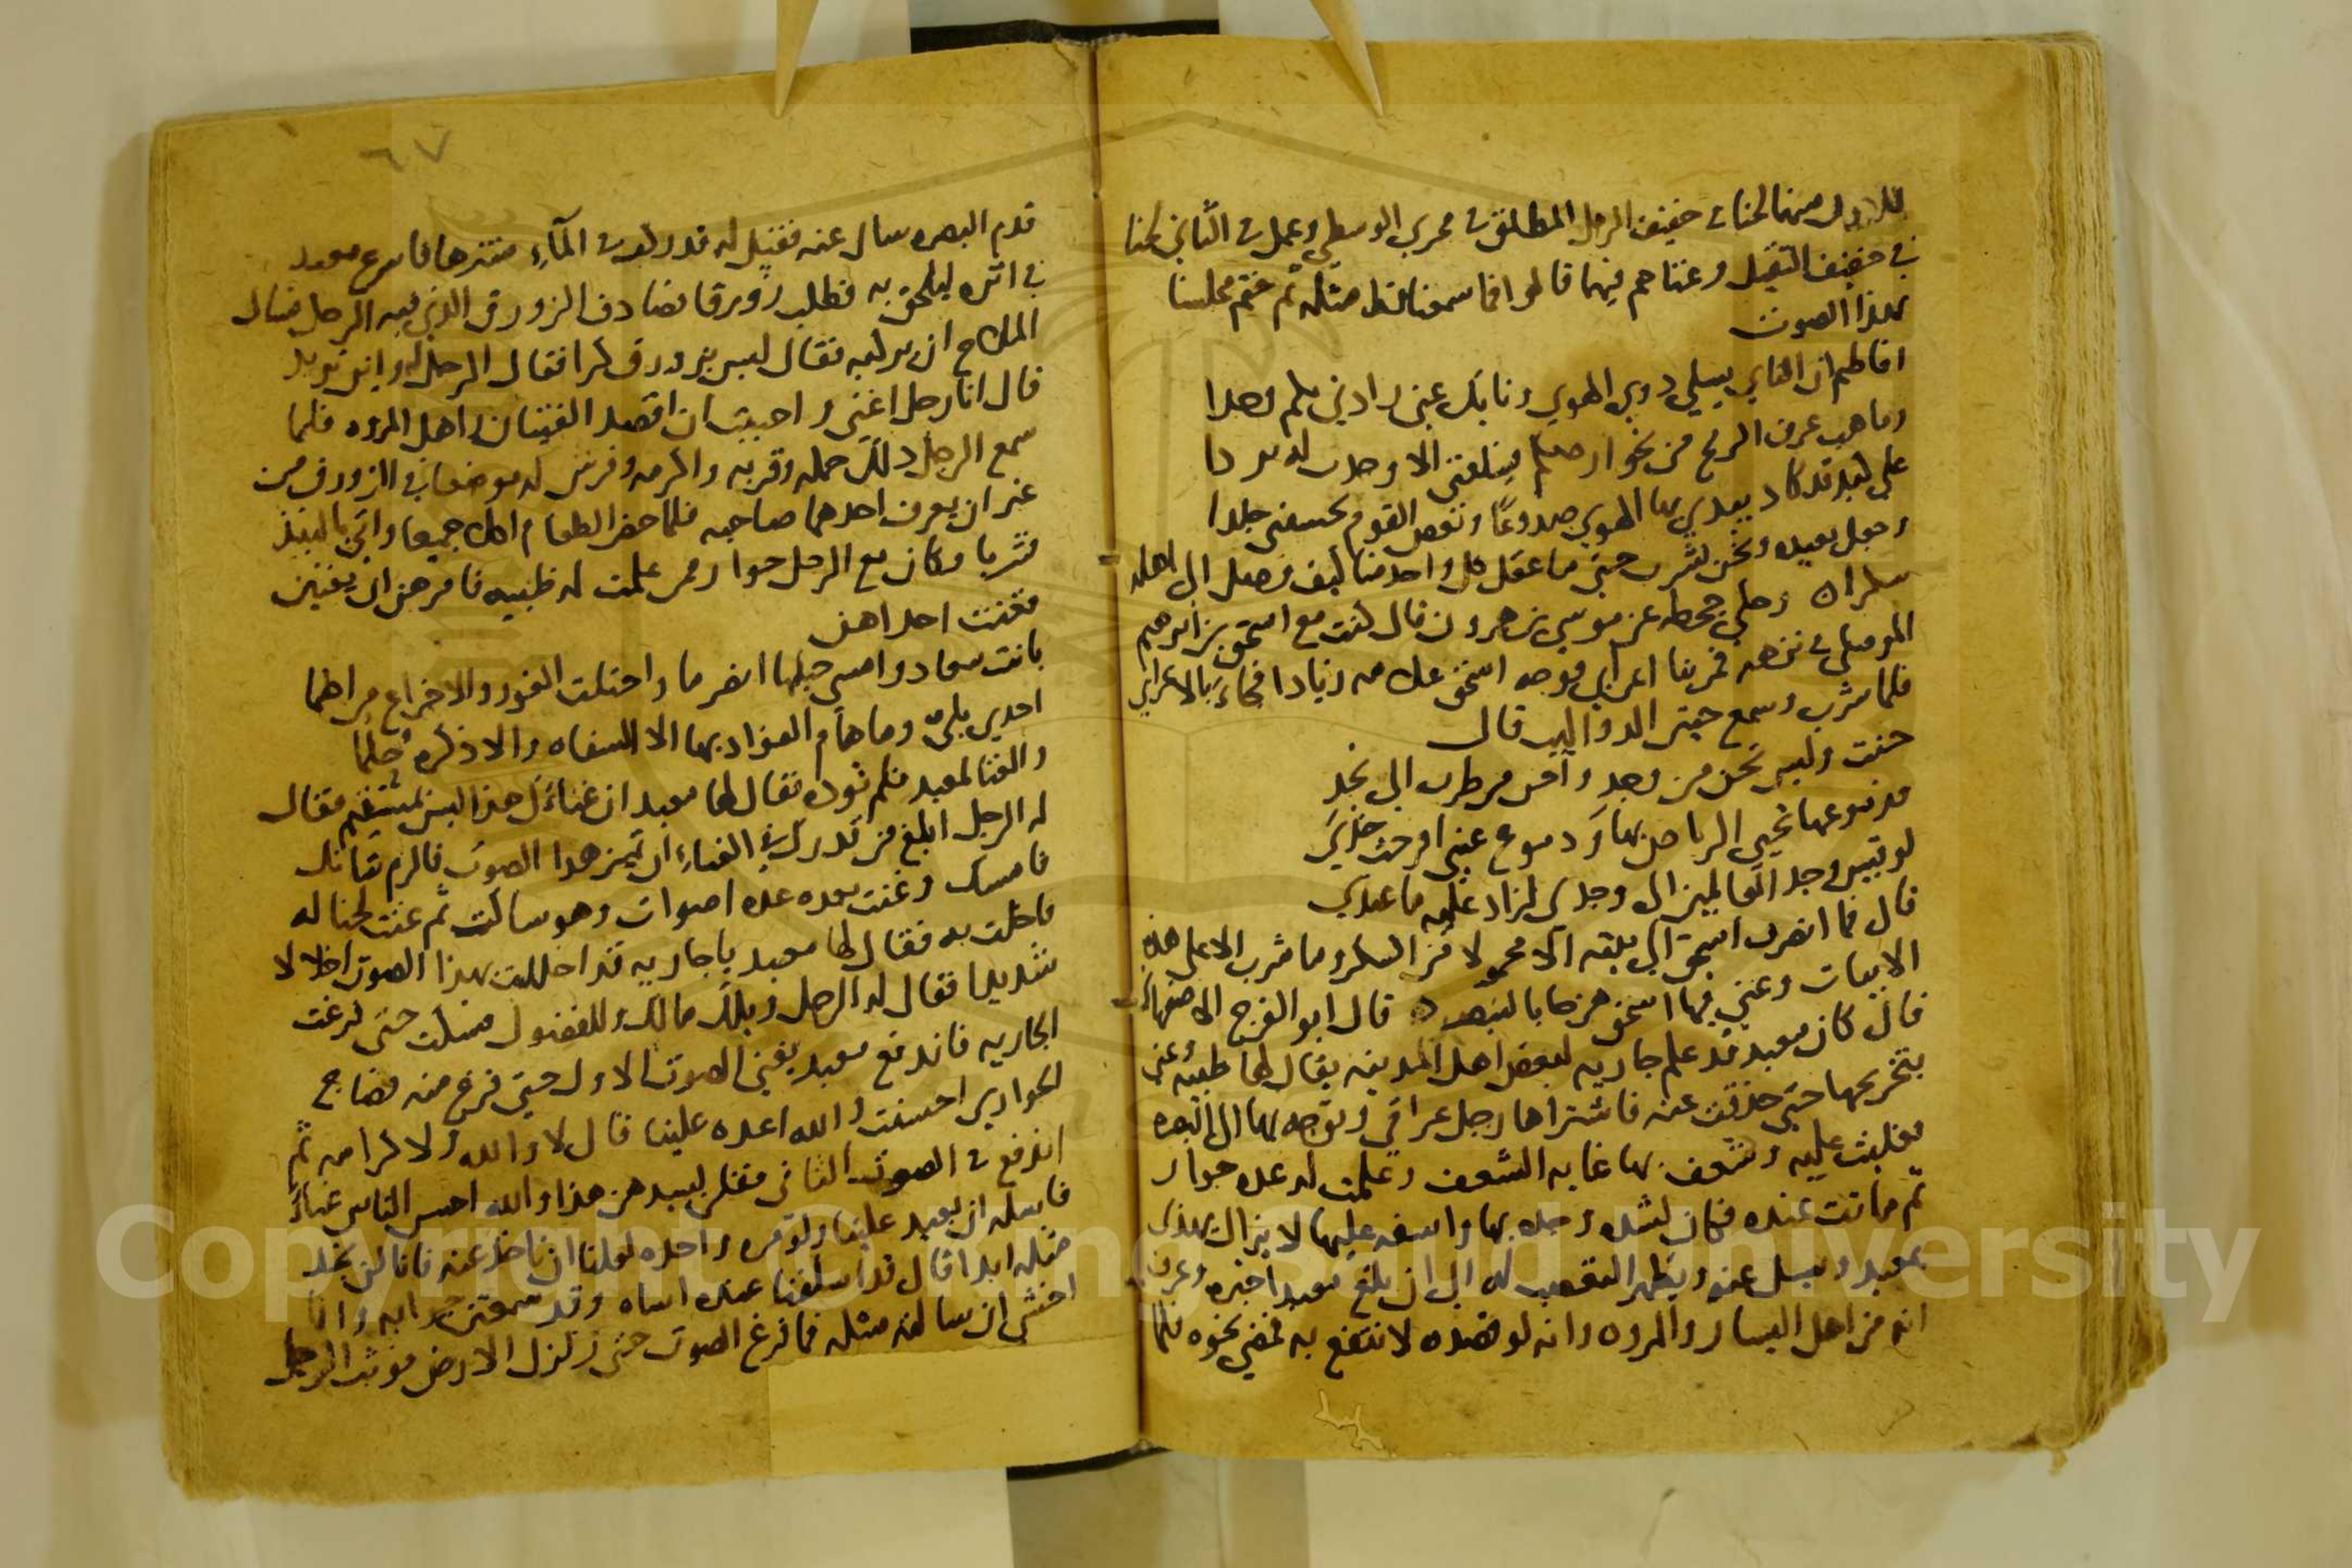 للاول منهما لحنا في خفيف الرمل المطلق في مجرى الوسطي وعمل في الثاني لحنا
في خفيف الثقيل وغناهم فيهما قالوا فما سمعنا قط مثله ثم ختم مجلسنا
بهذا الصوت
افاطم ان الناي يسلي ذوي الهوي ونايك عني زادني بكم وجدا
وما هب عرف الريح من نحو ارضكم فيبلغني الا وجدت له بردا
علي كبد قد كاد يبدي بها الهوي صدوعا وبعض القوم يحسبني جلدا
وجعل يعيده ونحن نشرب حتي ما عقل كل واحد منا كيف وصل الي اهله
سكرا وحكي جحظه عن موسي بن هرون قال كنت مع اسحق بن ابرهيم
الموصلي في نزهه فمر بنا اعرابي فوجه اسحق غلامه زيادا فجاء بالاعرابي
فلما شرب وسمع حنين الدواليب قال
حنت وليس تحن من وجد وأحن من طرب الي نجد
فدموعها تحيي الرياض بها ودموع عيني اقرحت خدي
لو قيس وجد العالمين الي وجدي لزاد عليه ما عندي
قال فما انصرف اسحق الي بيته الا محمولا من السكر وما شرب الا علي هذه
الابيات وغني فيها اسحق هزجا بالبنصر قال ابو الفرج الاصفهاني
قال كان معبد قد علم جاريه لبعض اهل المدينه يقال لها ظبيه وعني
بتخريجها حتي حذقت عنه فاشتراها رجل عراقي وتوجه بها الي البصره
فغلبت عليه وشغف بها غايه الشغف وعلمت له عده جوار
ثم ماتت عنده فكان لشده وجده بها واسفه عليها لا يزال يهذي
بمعبد ويسل عنه ويظهر التعصب له الي ان بلغ معبد اخبره وعرف
انه من اهل اليسار والمروه وانه لو قصده لانتفع به فمضي نحوه فلما
٦٧
قدم البصره سال عنه فقيل له قد ركب في المآء متنزها فاسرع معبد
في اثره ليلحق به فطلب زورقا فصادف الزورق الذي فيه الرجل فسال
الملاح ان يركبه فقال ليس بزورق كرا فقال الرجل له واين تريد
قال انا رجل اغني واحببت ان اقصد الفتيان واهل المروه فلما
سمع الرجل ذلك حمله وقربه واكرمه وفرش له موضعا في الزورق من
غير ان يعرف احدهما صاحبه فلما حضر الطعام اكلا جميعا واتي بالنبيذ
فشربا وكان مع الرجل جوار ممن علمت له ظبيه فامرهن ان يغنين
فغنت احداهن
بانت سعاد وامسي حبلها انصرما واحتلت الغور والاجزاع من اضما
احدي بلي وما هام الفواد بها الا السفاه والا ذكره حلما
والغنا لمعبد فلم توده فقال لها معبد ان غناءك هذا ليس بمستقيم فقال
له الرجل ابلغ من قدرك في الغناء ان تميز هذا الصوت فالزم شانك
فامسك وغنت بعده عده اصوات وهو ساكت ثم غنت لحنا له
فاخلت به فقال لها معبد يا جاريه قد اخللت بهذا الصوت اخلالا
شديدا فقال له الرجل ويلك مالك وللفضول فسكت حتي فرغت
الجاريه فاندفع معبد يغني الصوت الاول حتي فرغ منه فصاح
الجواري احسنت والله اعده علينا قال لا والله ولا كرامه ثم
اندفع في الصوت الثاني فقلن لسيدهن هذا والله احسن الناس غناء
فاسله ان يعيد علينا ولو مره واحده لعلنا ان ناخذ عنه فانا لن نجد
مثله ابدا قال قد اسلفنا عنده اساه وقد سمعتن جوابه وانا
اخشي ان سالته مثله فما فرغ الصوت حتي زلزل الارض فوثب الرجل